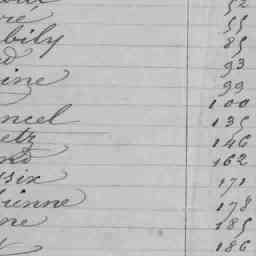 52
re 55
bily 85
d 93
ine 99
100
ncel 135
etz 146
nd 162
six 171
ienne 178
ne 185
t 186